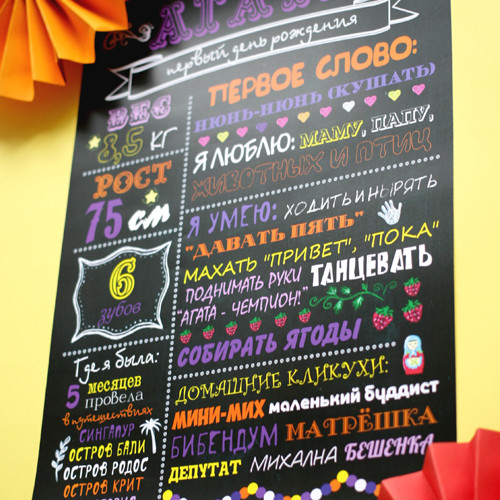 АГАТА
первый день рождения
ВЕС
8,5 кг
РОСТ
75 см
6
зубов
Где я была:
5 месяцев
провела
в путешествиях
СИНГАПУР
ОСТРОВ БАЛИ
ОСТРОВ РОДОС
ОСТРОВ КРИТ
ПЕРВОЕ СЛОВО:
НЮНЬ-НЮНЬ (КУШАТЬ)
Я ЛЮБЛЮ: МАМУ, ПАПУ,
ЖИВОТНЫХ И ПТИЦ
Я УМЕЮ: ХОДИТЬ И НЫРЯТЬ
"ДАВАТЬ ПЯТЬ"
МАХАТЬ "ПРИВЕТ", "ПОКА"
ПОДНИМАТЬ РУКИ
"АГАТА - ЧЕМПИОН!"
ТАНЦЕВАТЬ
СОБИРАТЬ ЯГОДЫ
ДОМАШНИЕ КЛИКУХИ:
МИНИ-МИХ маленький буддист
БИБЕНДУМ МАТРЁШКА
ДЕПУТАТ МИХАЛНА БЕШЕНКА